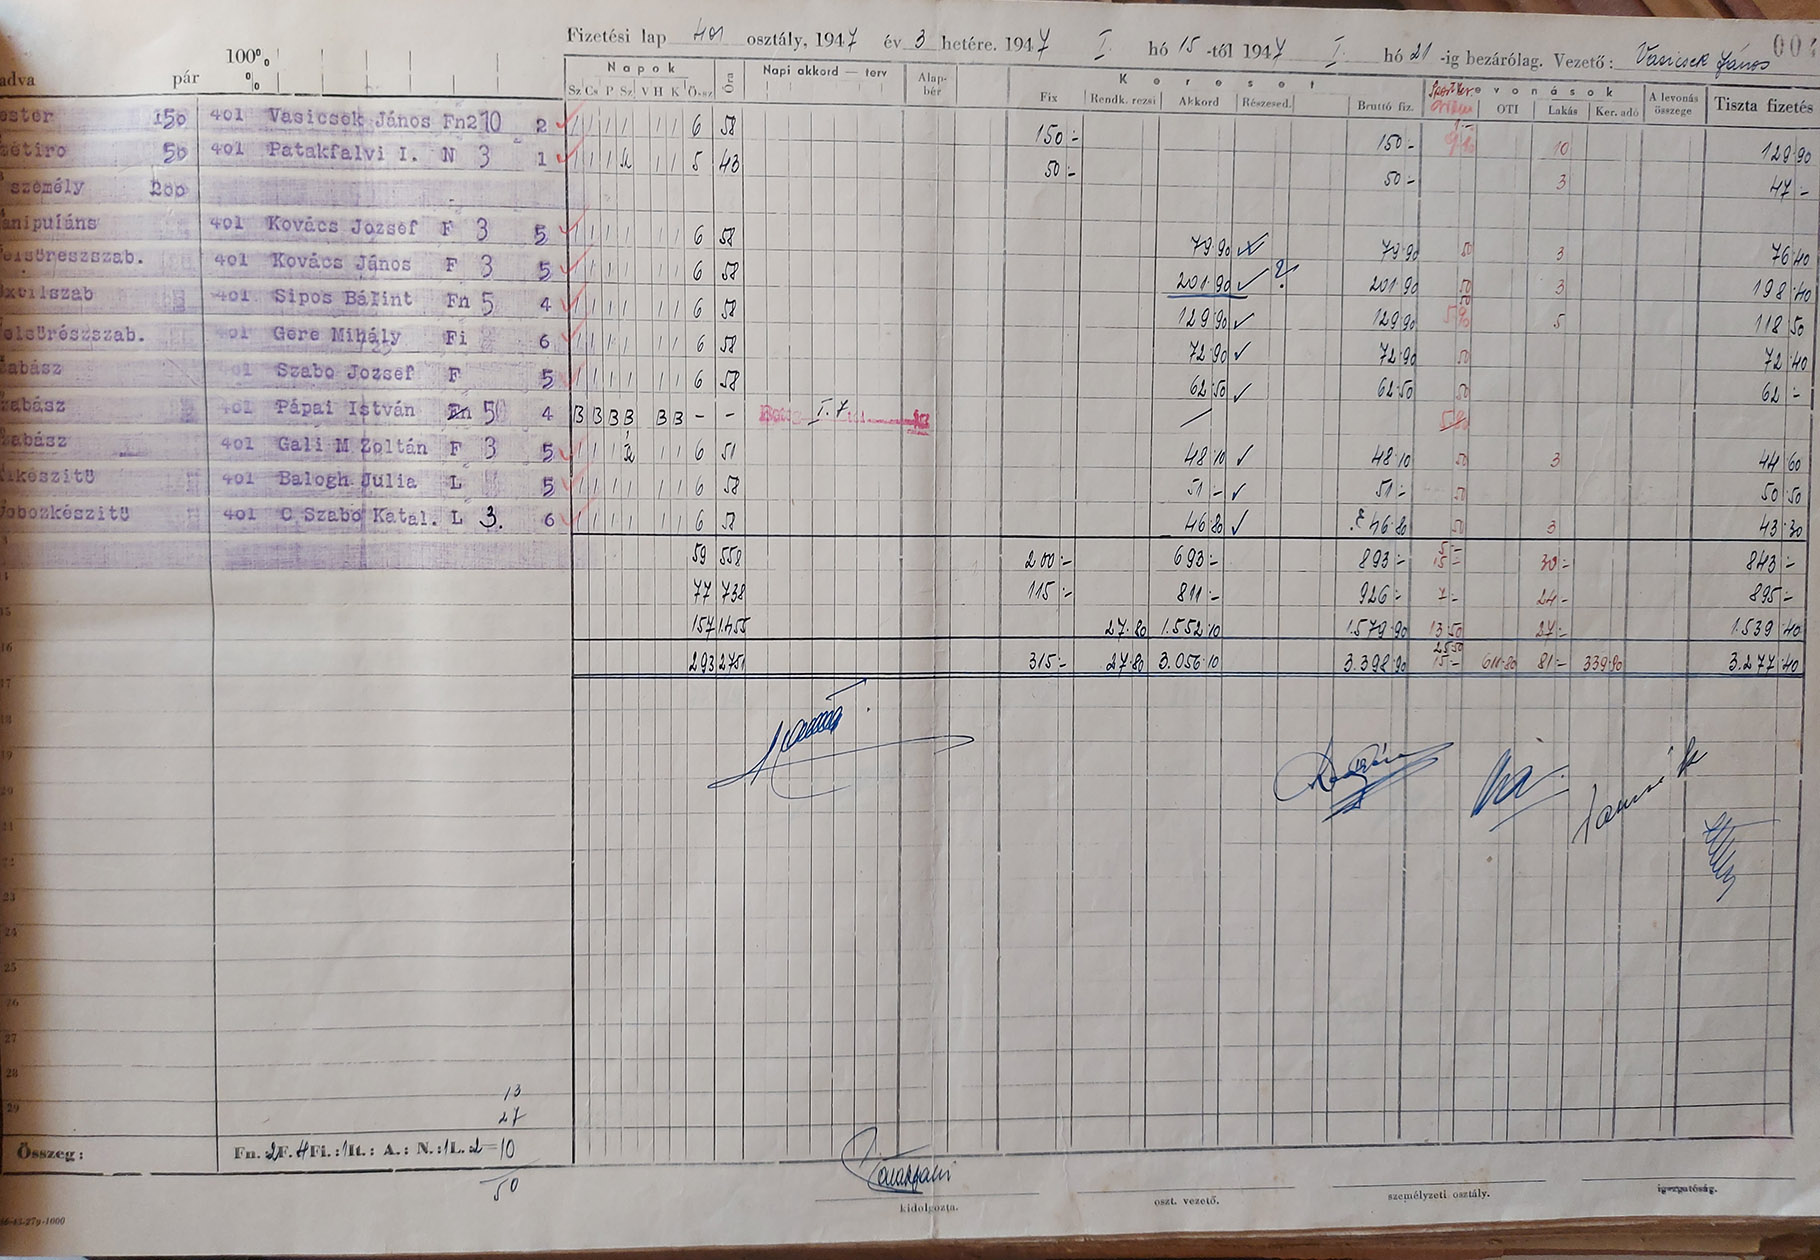 Fizetési lap 401 osztály, 1947 év 3 hetére. 1947 I. hó 15 -től 1947 I. hó 21 -ig bezárólag. Vezető: Vasicsek János 00
adva pár 100% %
Napok Óra Napi akkord — terv Alap-bér Kereset Levonások Tiszta fizetés
Sz Cs P Sz V H K Össz Fix Rendk. rezsi Akkord Részesed. Bruttó fiz. OTI Lakás Ker. adó A levonás összege
ester 150 401 Vasicsek János Fn 2 10 2 6 58 150:- 150:- 10 129.90
zetiro 50 401 Patakfalvi I. N 3 1 5 43 50:- 50:- 3 47:-
személy 200
anipuláns 401 Kovács József F 3 5 6 58 79.90 79.90 50 3 76.40
elsőreszszab. 401 Kovács János F 3 5 6 58 201.90 ? 201.90 50 3 198.40
extilszab 401 Sipos Bálint Fn 5 4 6 58 129.90 129.90 5 118.50
elsőrészszab. 401 Gere Mihály Fi 6 6 58 72.90 72.90 50 72.40
zabász 401 Szabo Jozsef F 5 6 58 62.50 62.50 50 62:-
zabász 401 Pápai István Fn 50 4 B B B B B B - - Beteg I. 7 -től
zabász 401 Gali M Zoltán F 3 5 6 51 48.10 48.10 50 3 44.60
készitő 401 Balogh Julia L 5 6 58 51:- 51:- 50 50.50
obozkészitő 401 C Szabo Katal. L 3. 6 6 58 46.80 46.80 50 3 43.30
59 558 200:- 693:- 893:- 5:- 15:- 30:- 843:-
77 738 115:- 811:- 926:- 7:- 24:- 895:-
157 1.455 27.80 1.552.10 1.579.90 13.50 27:- 1.539.40
293 2751 315:- 27.80 3.056.10 3.398.90 25.50 15:- 611.80 81:- 339.90 3.277.40
15
16
17
18
19
20
21
22
23
24
25
26
27
28
29
13
27
Összeg: Fn. 2 F. 4 Fi.: 1 It.: A.: N.: 1 L. 2 = 10
50
kidolgozta. oszt. vezető. személyzeti osztály. igazgatóság.
66-45-27g-1000